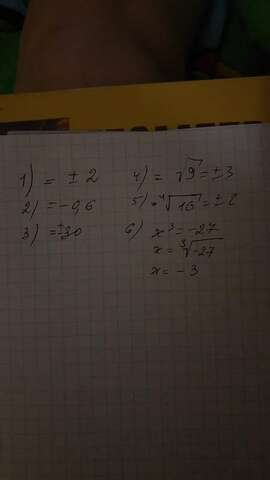 1) = ± 2
2) = -0,6
3) = ±30
4) = √9 = ±3
5) ⁴√16 = ± 2
6) x³ = -27
x = ³√-27
x = -3